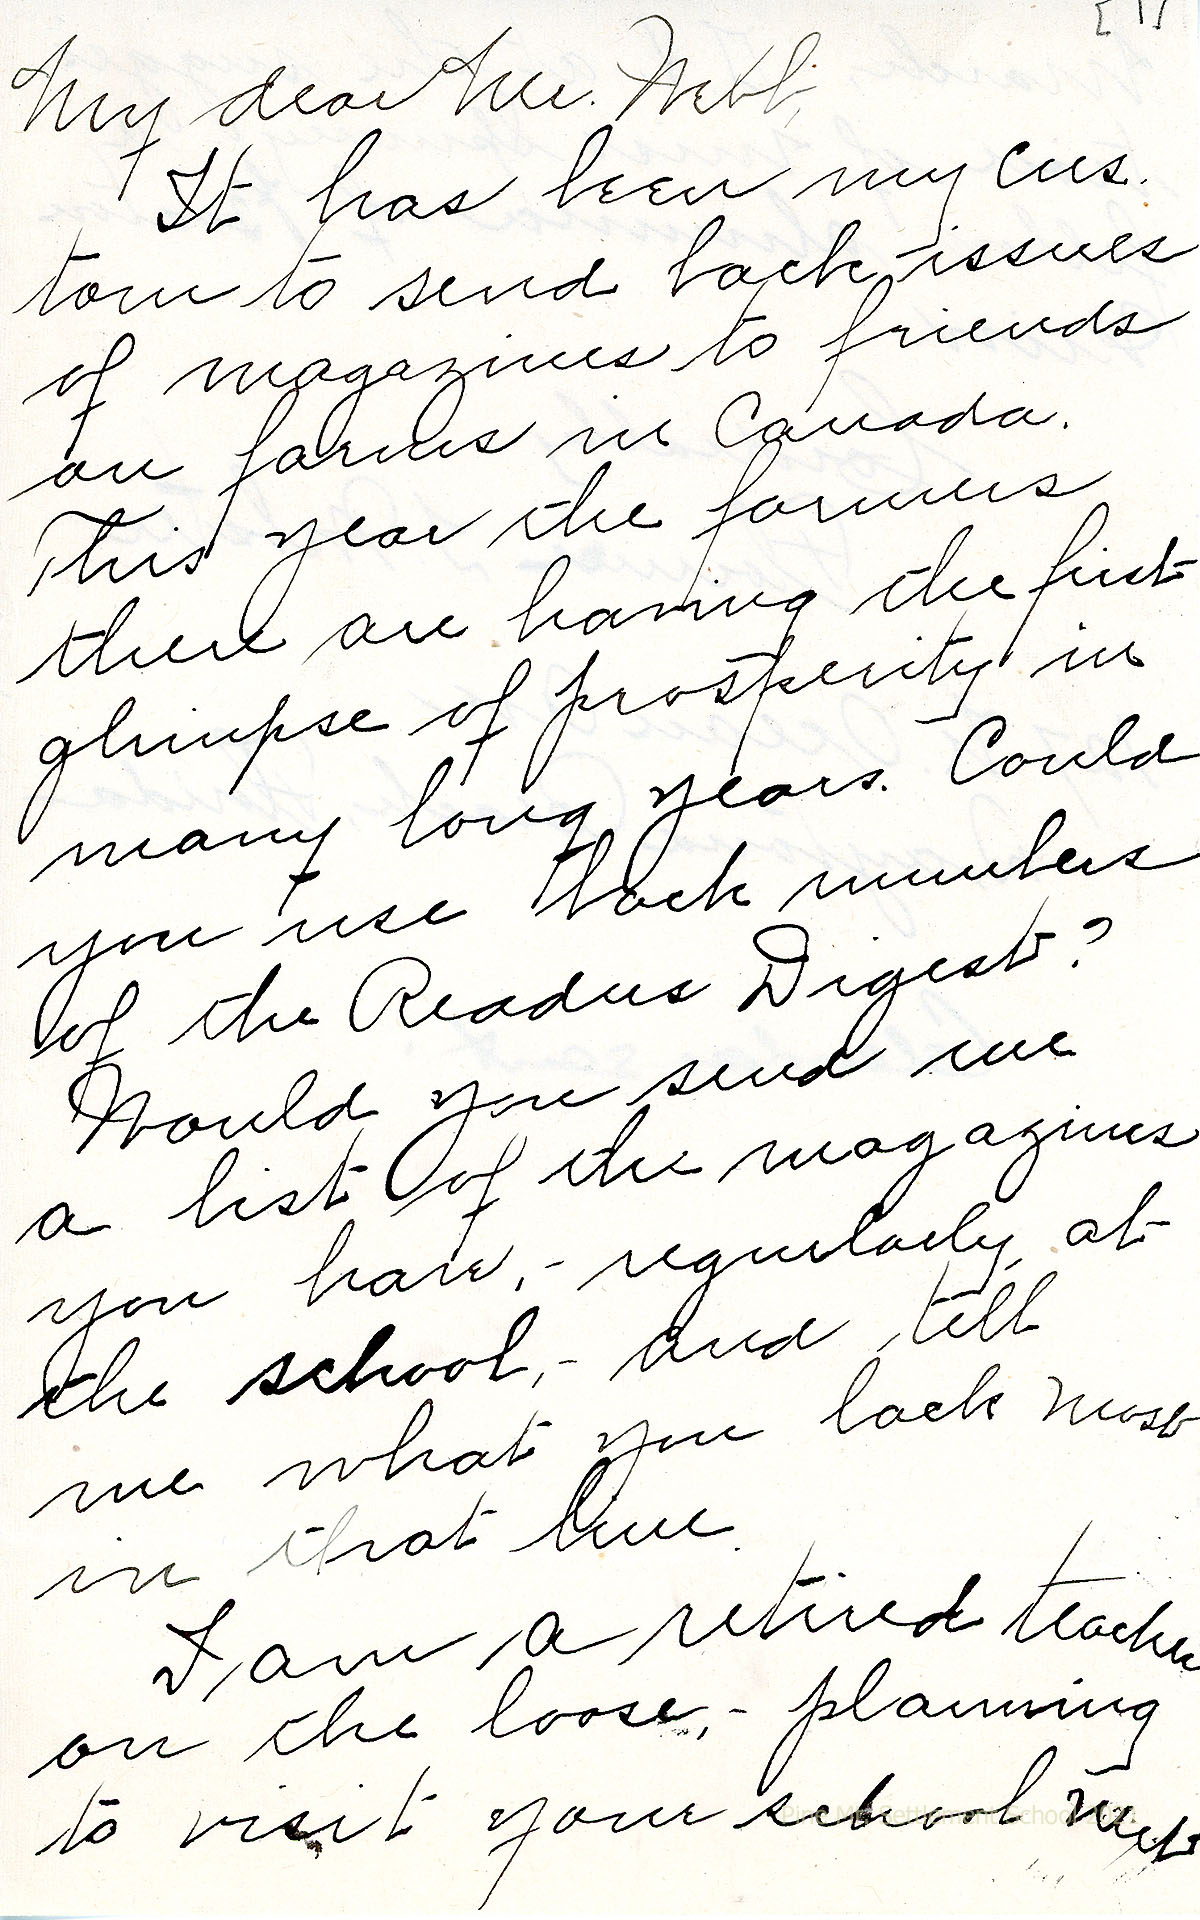 [1]
My dear Mr. Webb,
It has been my cus-
tom to send back-issues
of magazines to friends
on farms in Canada.
This year the farmers
there are having the first
glimpse of prosperity in
many long years. Could
you use back numbers
of the Readers Digest?
Would you send me
a list of the magazines
you have, - regularly, at
the school, - and tell
me what you lack most
in that line.
I am a retired teacher
on the loose, - planning
to visit your school next
Pine Mt. Settlement School 2021